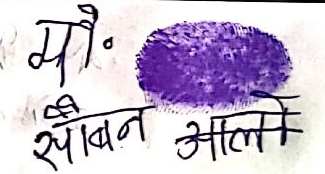 मौ॰
सौबन आलम